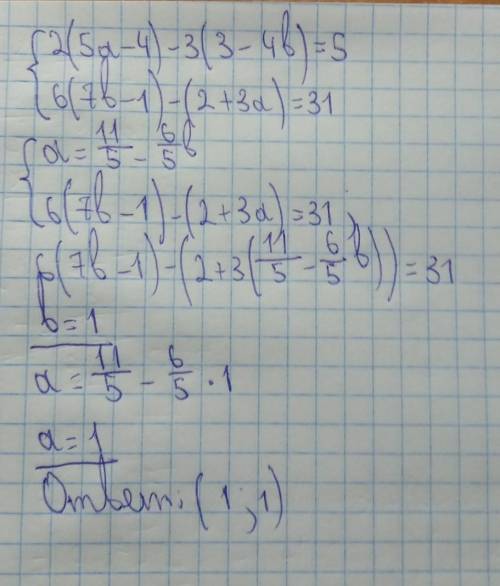 {2(5a-4)-3(3-4b)=5
6(7b-1)-(2+3a)=31
{a=11/5-6/5b
6(7b-1)-(2+3a)=31
6(7b-1)-(2+3(11/5-6/5b))=31
b=1
a=11/5-6/5·1
a=1
Ответ: (1;1)